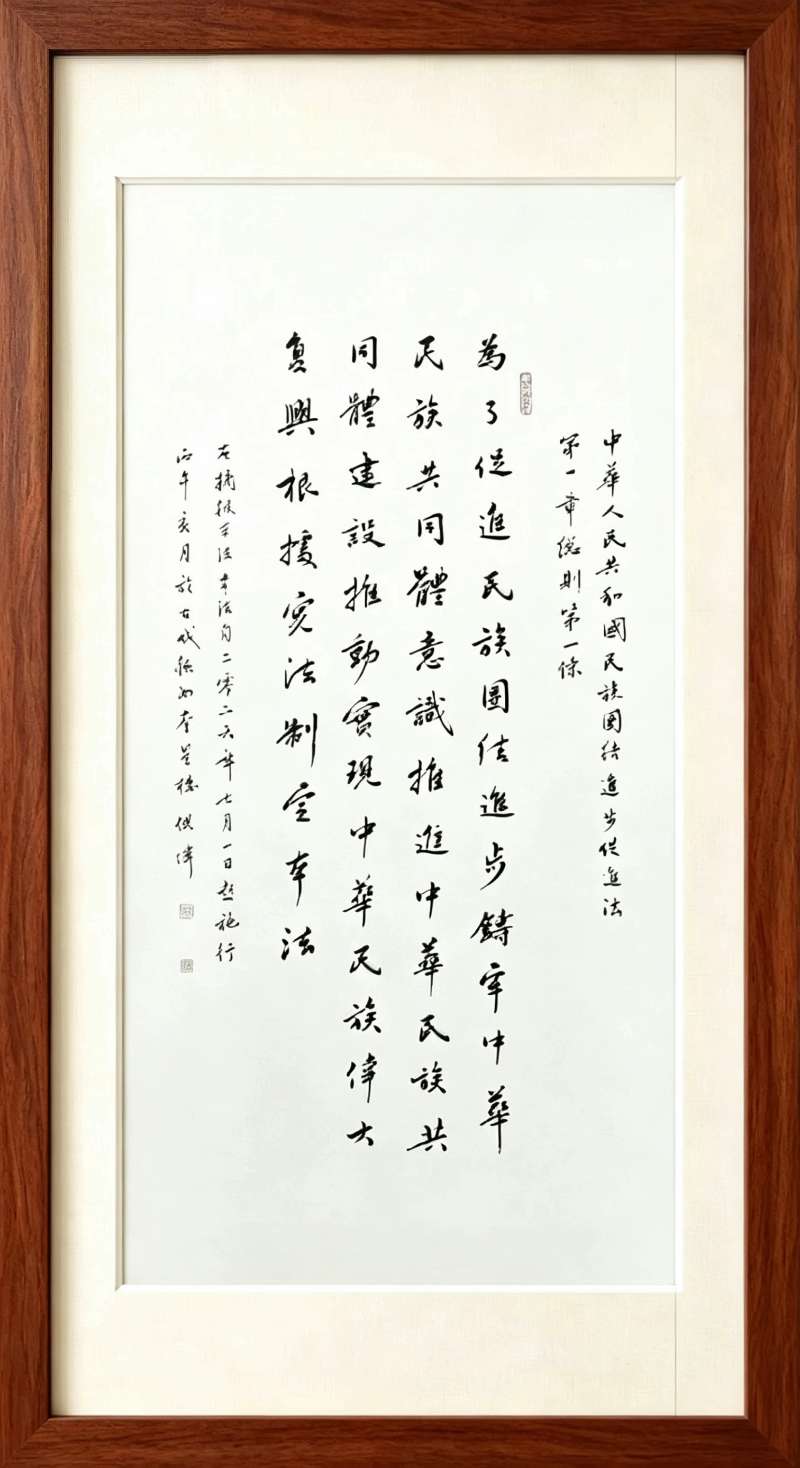 中華人民共和國民族團結進步促進法
第一章總則第一條
為了促進民族團結進步鑄牢中華
民族共同體意識推進中華民族共
同體建設推動實現中華民族偉大
复興根據宪法制定本法
左摘錄于法本法自二零二六年七月一日起施行
丙午亥月於古代